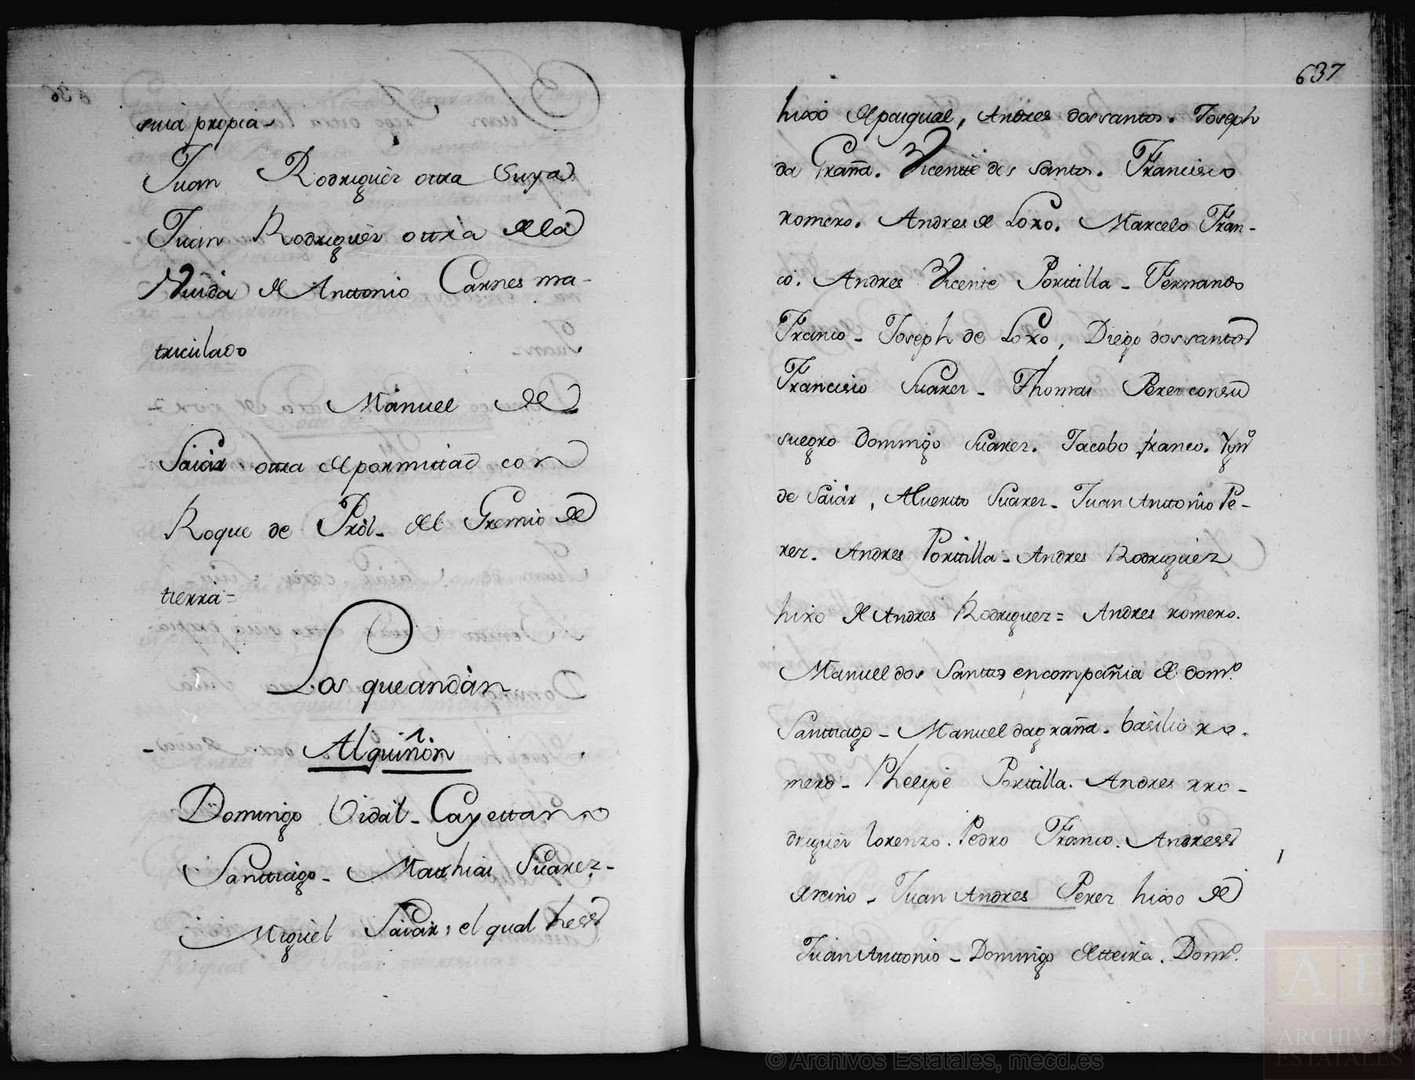 suia propia-
Juan Rodriguez otra Suya
Juan Rodriguez ottra de la
Viuda de Anttonio Carnes ma-
triculado
Manuel de
Saiar otra de por mittad con
Roque de Prol- del Gremio de
tierra=
Los que andan
Al quiñon
Domingo Vidal- Cayettano
Santtiago- Matthias Suarez-
Miguel Saiar, el qual hes
637
hixo de pasqual, Andres dos santos. Joseph
da Graña. Vicente dos Santos. Francisco
romero. Andres de Loxo. Marcelo Fran-
co. Andres Vicente Porttilla- Fernando
Franco- Joseph de Loxo, Diego dos santos
Francisco Suarez- Thomas Perez con su
suegro Domingo Suarez. Jacobo franco. Ygnº
de Saiar, Alverto Suarez- Juan Anttonio Pe-
rez. Andres Porttilla- Andres Rodriguez
hixo de Andres Rodriguez= Andres romero.
Manuel dos Santtos en compañia de Domº
Santtiago- Manuel da graña. basilio ro-
mero- Phelipe Porttilla. Andres rro-
driguez Lorenzo. Pedro Franco. Andres
- Juan Andres Perez hixo de
Juan Anttonio- Domingo Domº
© Archivos Estatales, mecd.es
AE
ARCHIVOS
ESTATALES